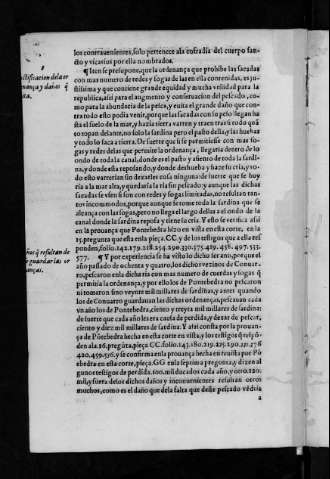 los contrauenientes, solo pertenece ala cofradia del cuerpo san-
cto y vicarios por ella nombrados.
¶ Iten se presupone, que la ordenança que prohibe las sacadas
con mas numero de redes y sogas de las en ella contenidas, es ju-
stissima y que contiene grande equidad y mucha vtilidad para la
republica, assi para el augmento y conseruacion del pescado, co-
mo para la abundãcia de la pesca, y euita el grande daño que con-
tra todo esto podia venir, porque las sacadas con su peso llegan ha
sta al suelo de la mar, y hazia tierra varren y traen tras si todo quã
to topan delante, no solo la sardina pero el pasto della, y las hueuas
y todo lo saca a tierra. De suerte que si se permitiesse con mas so-
gas y redes delas que permite la ordenança, llegaria dentro de lo
ondo de toda la canal, donde es el pasto y asiento de toda la sardi-
na, y donde ella reposa
do esto varrerian sin dexarles cosa ninguna de suerte que se huy
ria a la mar alta, y quedaria la ria sin pescado y aunque las dichas
sacadas se vsen si son con redes y sogas limitadas, no resultan tan-
tos incommodos, porque aunque se tome toda la sardina que se
alcança con las sogas, pero no llega el largo dellas a el ondo de la
canal donde la sardina reposa y tiene la cria. Y esto se verifica assi
en la prouança que Ponteuedra hizo en villa en esta corte, en la
15. pregunta que esta en la pieça. CC. y de los testigos que a ella res
ponden, folio. 143.179.218.254.290.330.375.419.458.497.533.
577. ¶ Y por experiencia se ha visto lo dicho ser ansi, porque el
año passado de ochenta y quatro, los dichos vezinos de Conuer-
ro, pescaron enla dicha ria con mas numero de cuerdas y sogas q̃
permitia la ordenança, y por ellos y los de Ponteuedra no pescaron
ni tomaron sino veynte mill millares de sardina, y antes quando
los de Conuerro guardauan las dichas ordenanças, pescauan cada
vn año los de Ponteuedra, ciento y treynta mil millares de sardina:
de suerte que cada año les era causa de perdida, y de xar de pescar,
ciento y diez mil millares de sardina. Y assi consta por la prouan-
ça de Põteuedra hecha en esta corte en vista, y los testigos q̃ respõ-
den ala. 16. pregũta, pieça. CC. folio.
y se confirma en la prouança hecha en reuista por Põ
tebedra en esta corte, pieça. GG. en la septima pregunta, y dizen al-
gunos testigos de perdida. 100. mil ducados cada año, y otro. 120.
mil, y fuera delos dichos daños y inconuenientes resultan otros
muchos, como es el daño que dela falta que desse pescado vědria
a